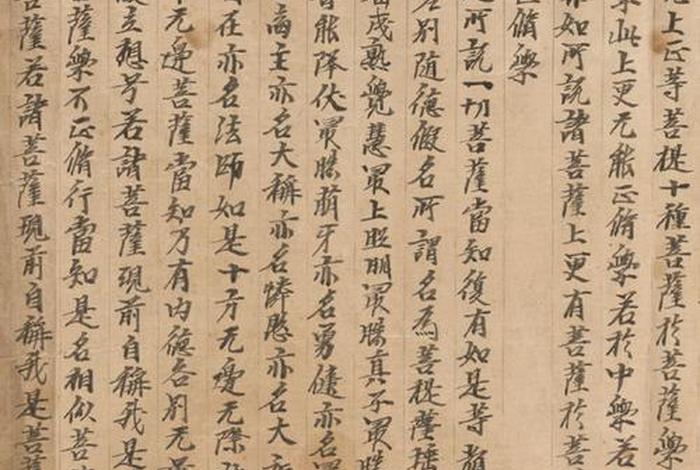 上正等菩提十種菩薩於菩薩學
此上更无能正俻學若於中學若
如所説諸菩薩上更有菩薩於菩
俻學
所説一切菩薩當知復有如是等
差别随德假名所謂名為菩提薩埵
成熟覺慧最上照明最勝真子最勝
能降伏最勝萠牙亦名勇健亦名
商主亦名大稱亦名憐愍亦名大
在亦名法師如是十方无邊无際
无邊菩薩當知乃有内德各别无
立想号若諸菩薩現前自稱我是
薩學不正俻行當知是名相似菩
菩薩若諸菩薩現前自稱我是菩薩